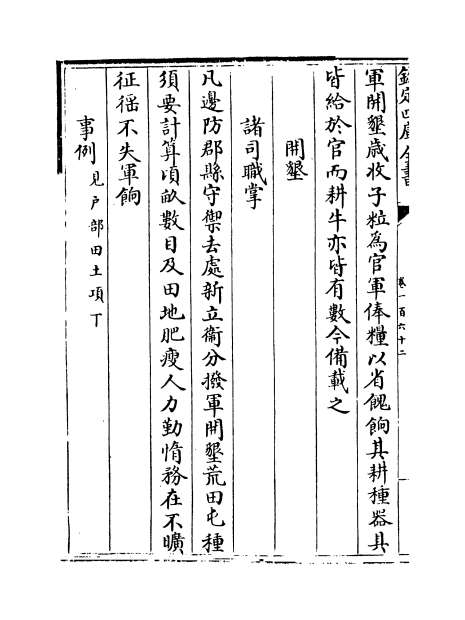 欽定四庫全書
卷一百六十二
軍開墾歳收子粒為官軍俸糧以省餽餉其耕種器具
皆給於官而耕牛亦皆有數今備載之
開墾
諸司職掌
凡邊防郡縣守禦去處新立衞分撥軍開墾荒田屯種
須要計算頃畝數目及田地肥瘦人力勤惰務在不曠
征徭不失軍餉
事例見戶部田土項下